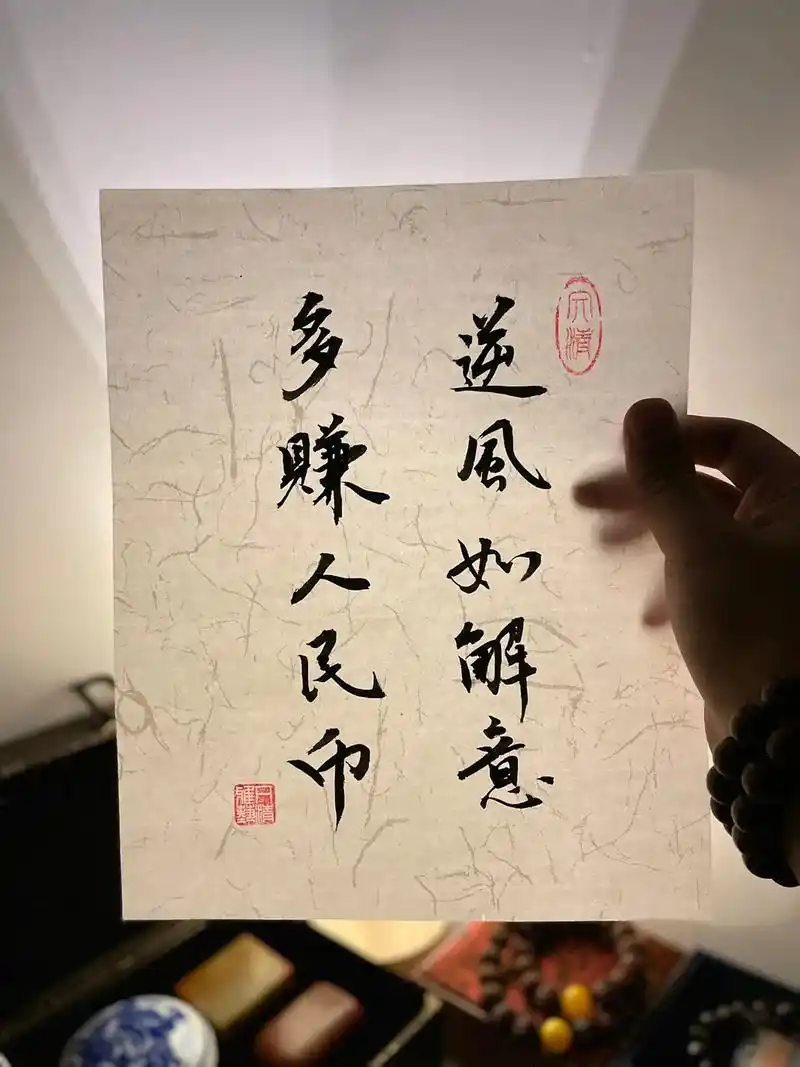 逆風如解意
多賺人民币